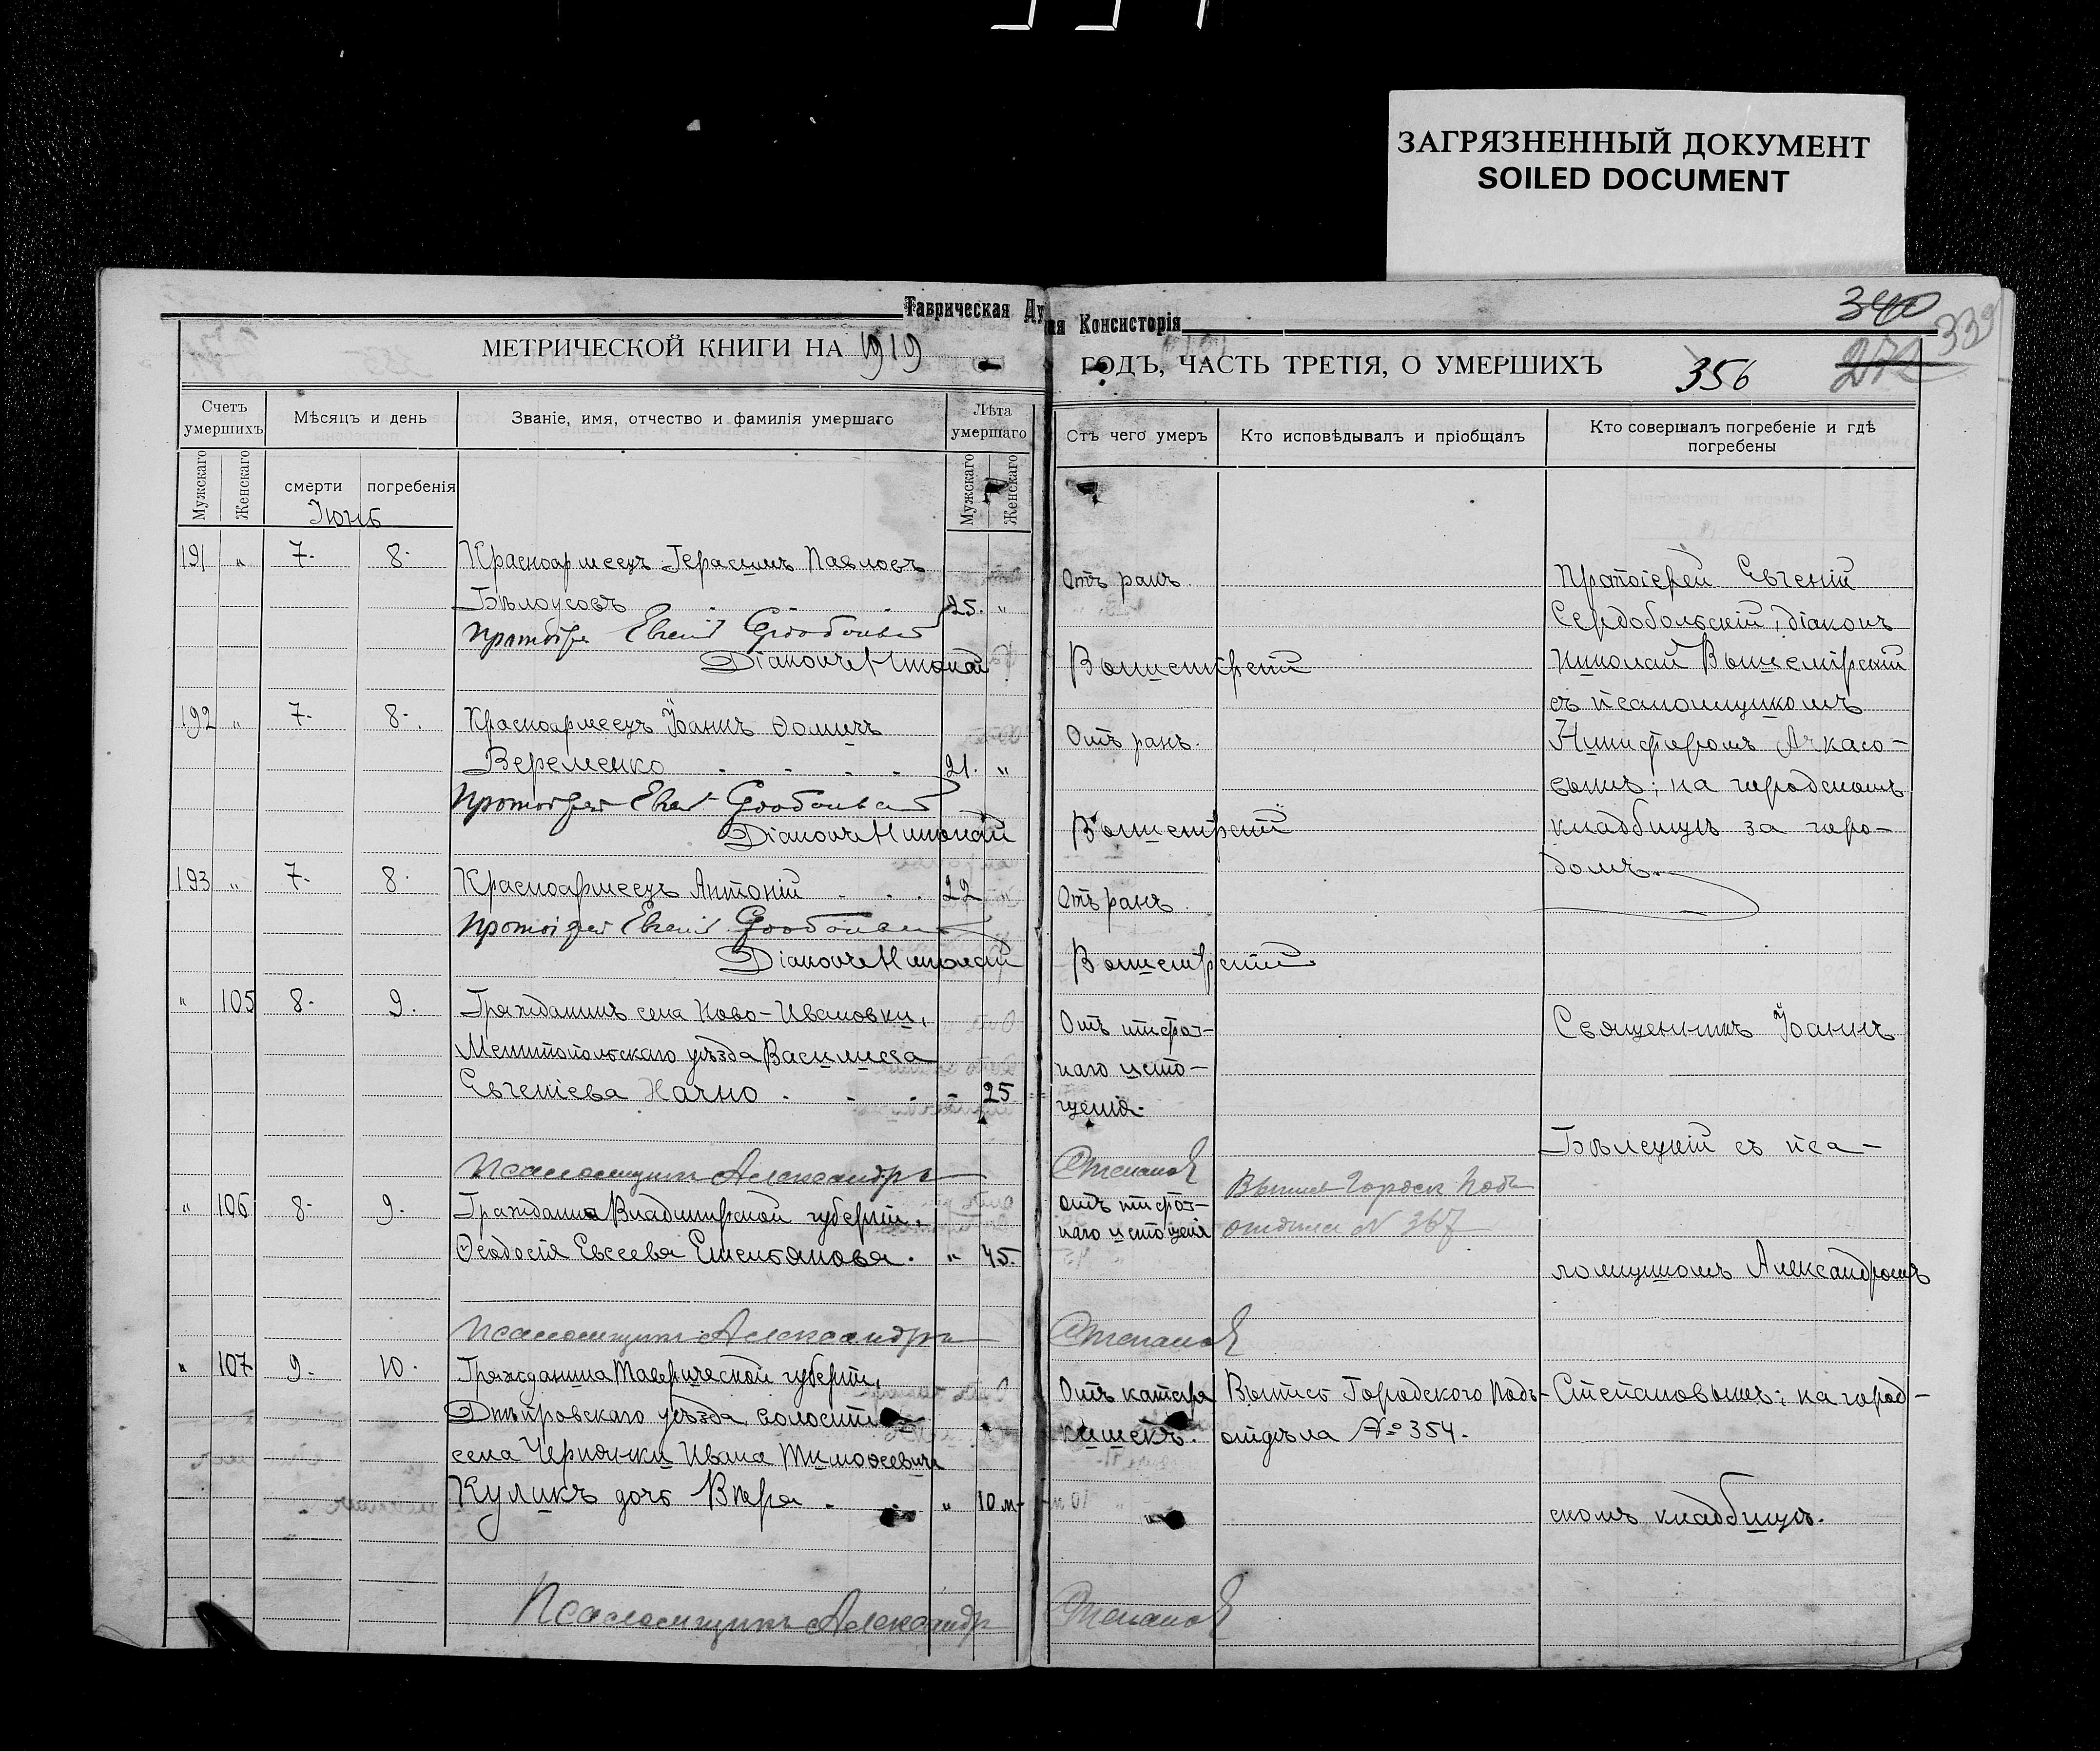 ЗАГРЯЗНЕННЫЙ ДОКУМЕНТ
SOILED DOCUMENT
Таврическая Ду
ая Консисторія
340
339
МЕТРИЧЕСКОЙ КНИГИ НА 1919
ГОДЪ, ЧАСТЬ ТРЕТІЯ, О УМЕРШИХЪ
356
272
Счетъ умершихъ
Мѣсяцъ и день
Званіе, имя, отчество и фамилія умершаго
Лѣта умершаго
Отъ чего умеръ
Кто исповѣдывалъ и пріобщалъ
Кто совершалъ погребеніе и гдѣ погребены
Мужскаго
Женскаго
смерти
погребенія
Мужскаго
Женскаго
Іюнь
191 " 7. 8. Красноармеецъ Герасимъ Павловъ
Бѣлоусовъ 25. "
Отъ ранъ.
Протоіерей Евгеній
Діаконъ Николай Вышемірскій
Протоіерей Евгеній
Сердобольскій, діаконъ
Николай Вышемірскій
съ псаломщикомъ
Никифоромъ Ачкасо-
вымъ; на городскомъ
кладбищѣ за горо-
домъ.
192 " 7. 8. Красноармеецъ Іоаннъ Ѳомичъ
Веременко 21. "
Отъ ранъ.
Протоіерей Евгеній
Діаконъ Николай Вышемірскій
193 " 7. 8. Красноармеецъ Антоній 22
Отъ ранъ.
Протоіерей Евгеній
Діаконъ Николай Вышемірскій
" 105 8. 9. Гражданинъ села Ново-Ивановки,
Мелитопольскаго уѣзда Василиса
Евгеніева Начно - 25
Отъ тифоз-
наго исто-
щенія.
Священникъ Іоаннъ
Бѣлецкій съ пса-
ломщикомъ Александромъ
Степановымъ; на город-
скомъ кладбищѣ.
Псаломщикъ Александръ Степановъ
" 106 8. 9. Гражданка Владимірской губерніи,
Ѳеодосія Евсеева Емельянова. " 45.
Отъ тифоз-
наго истощенія
отдѣла N 367
Псаломщикъ Александръ Степановъ
" 107 9. 10. Гражданина Таврической губерніи,
Днѣпровскаго уѣзда, волости и
села Чернянки Ивана Тимоѳеевича
Куликъ дочь Вѣра " 10 м.
Отъ катара
кишекъ.
Выпись Городского Подъ-
отдѣла № 354.
Псаломщикъ Александръ Степановъ